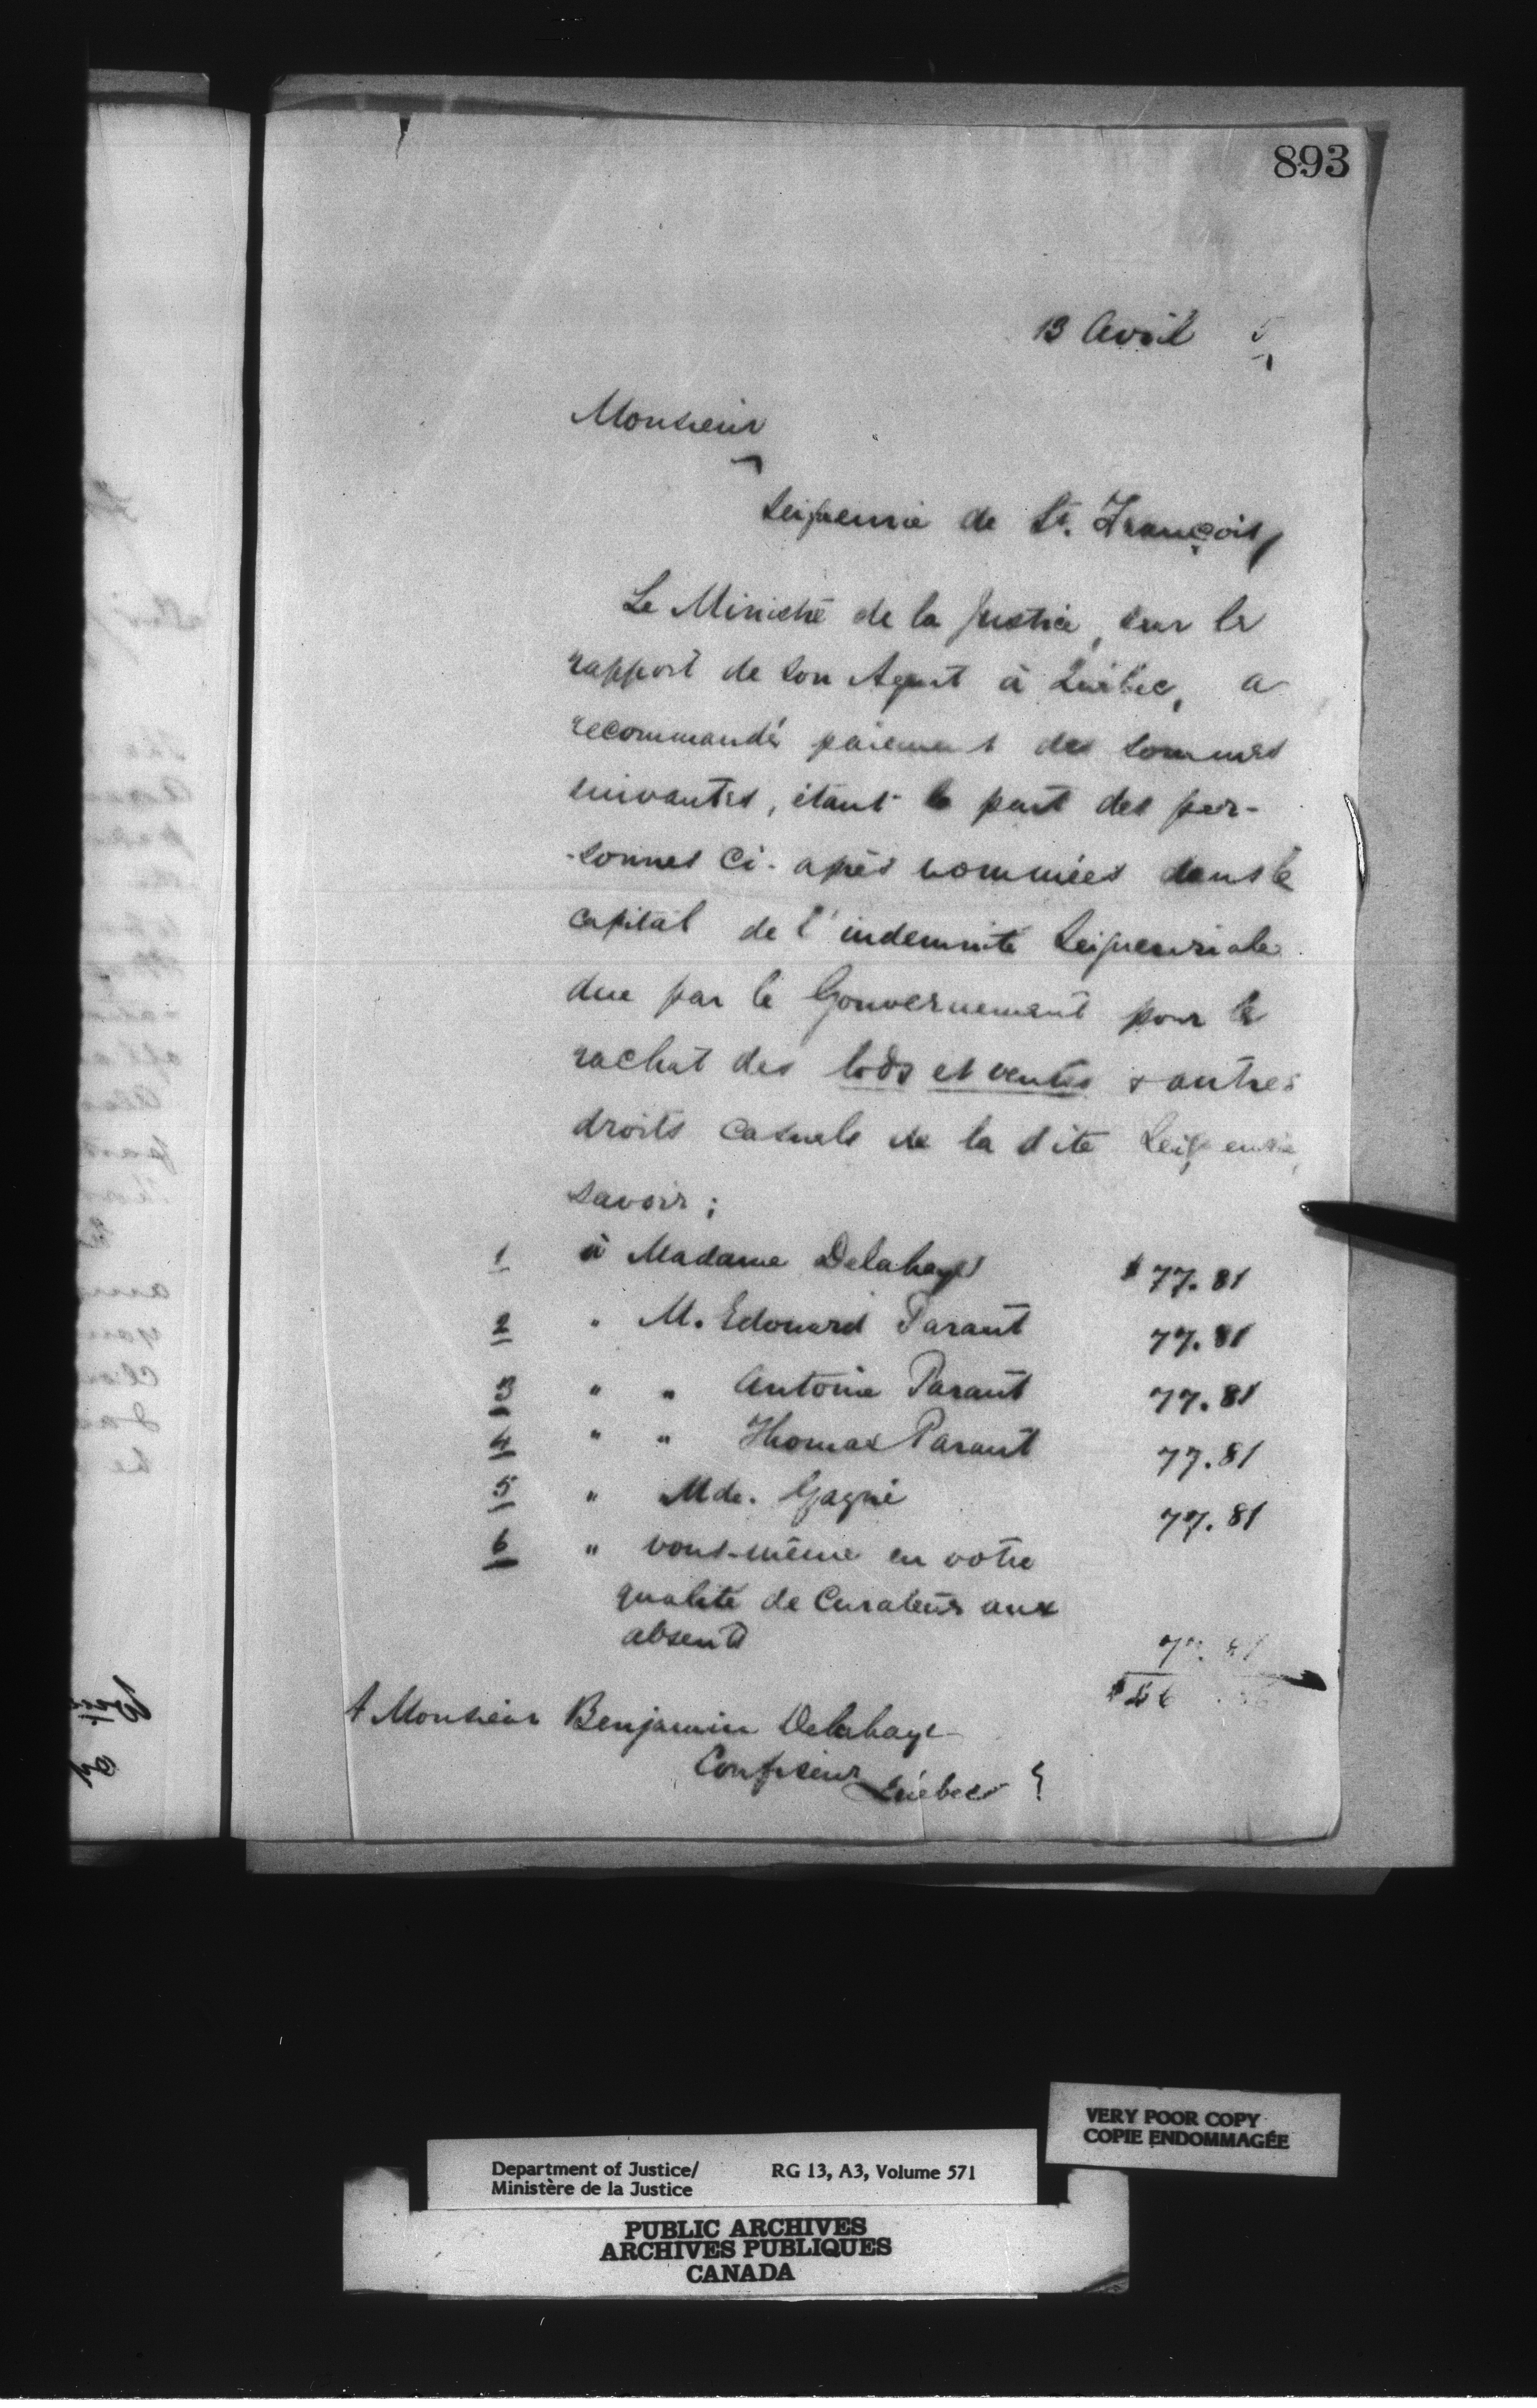 893
13 Avril 5
Monsieur
Seigneurie de St. François
Le Ministre de la Justice, sur le
rapport de son Agent à Québec, a
recommandé paiement des sommes
suivantes, étant la part des per-
-sonnes ci-après nommées dans le
capital de l'indemnité Seigneuriale
due par le Gouvernement pour le
rachat des lods et ventes & autres
droits casuels de la dite Seigneurie,
savoir;
1 à Madame Delahaye $77.81
2 " M. Edouard Parant 77.81
3 " " Antoine Parant 77.81
4 " " Thomas Parant 77.81
5 " Mde. Gagné 77.81
6 " vous-même en votre
qualité de Curateur aux
absents 77.81
A Monsieur Benjamin Delahaye
Confiseur
Québec
VERY POOR COPY
COPIE ENDOMMAGÉE
Department of Justice/ RG 13, A3, Volume 571
Ministère de la Justice
PUBLIC ARCHIVES
ARCHIVES PUBLIQUES
CANADA